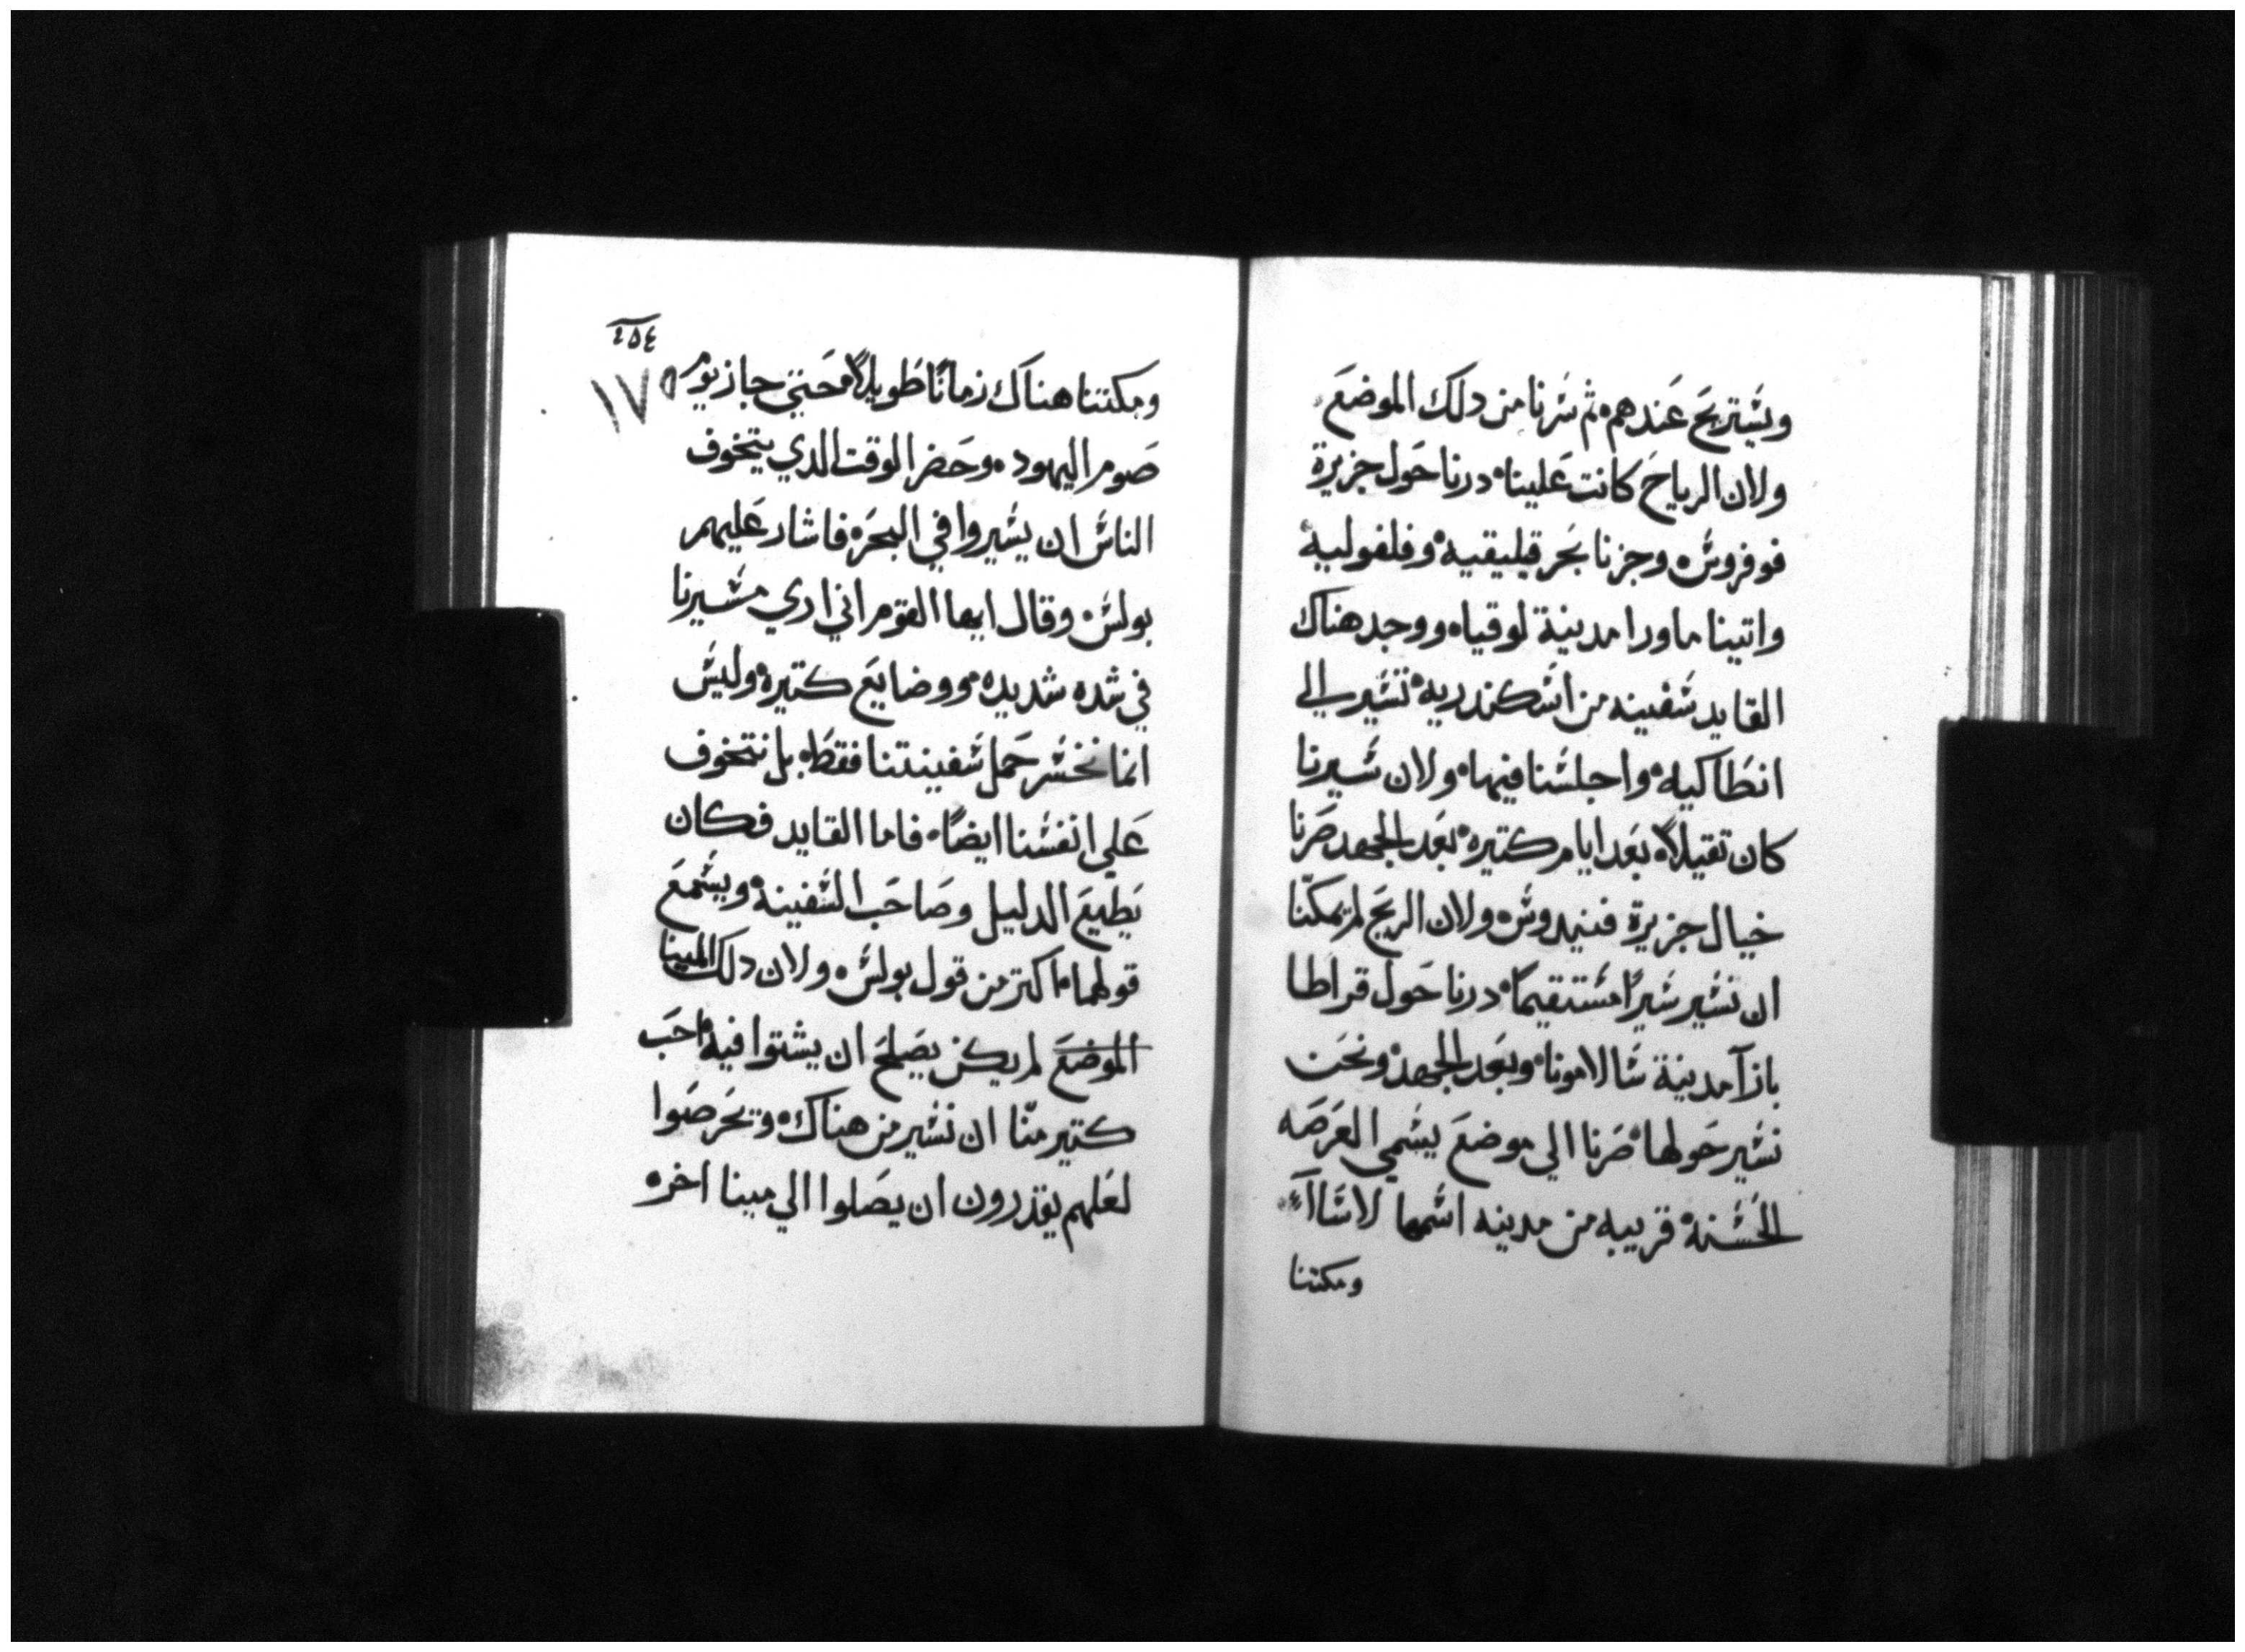 ويستريح عندهم ثم سرنا من دلك الموضع
ولان الرياح كانت علينا درنا حول جزيرة
فوفروس وجزنا بحر قيليقيه وفلفوليه
واتينا ماورا مدينة لوقيا ووجد هناك
القايد سفينه من اسكندريه تسير الي
انطاكيه واجلسنا فيها ولان سيرنا
كان تقيلاً بعد ايام كتيره بعد الجهد صرنا
خيال جزيرة قنيدوس ولان الريح لم تمكنّا
ان نسير سيراً مستقيماً درنا حول قراطا
بازآ مدينة سالامونا وبعد الجهد ونحن
نسير حولها صرنا الي موضع يسمي العرصه
الحسنة قريبه من مدينه اسمها لاساآ
ومكتنا
٢٥٤
١٧٥
ومكتنا هناك زماناً طويلاً حتي جاز يوم
صوم اليهود وحضر الوقت الدي يتخوف
الناس ان يسيروا في البحر فاشار عليهم
بولس وقال ايها القوم اني اري مسيرنا
في شده شديده ووضايع كتيره وليس
انما نخسر حمل سفينتنا فقط بل نتخوف
علي انفسنا ايضاً فاما القايد فكان
يطيع الدليل وصاحب السفينة ويسمع
قولهما اكتر من قول بولس ولان دلك المينا
الموضع لم يكن يصلح ان يشتوا فيه احب
كتير منّا ان نسير من هناك وتحرصوا
لعلهم يقدرون ان يصلوا الي مينا اخره